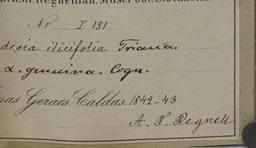 No I 151
desia ilicifolia Triana.
α. genuina. Cogn.
nas Geraes: Caldas. 1842-43
A. F. Regnell